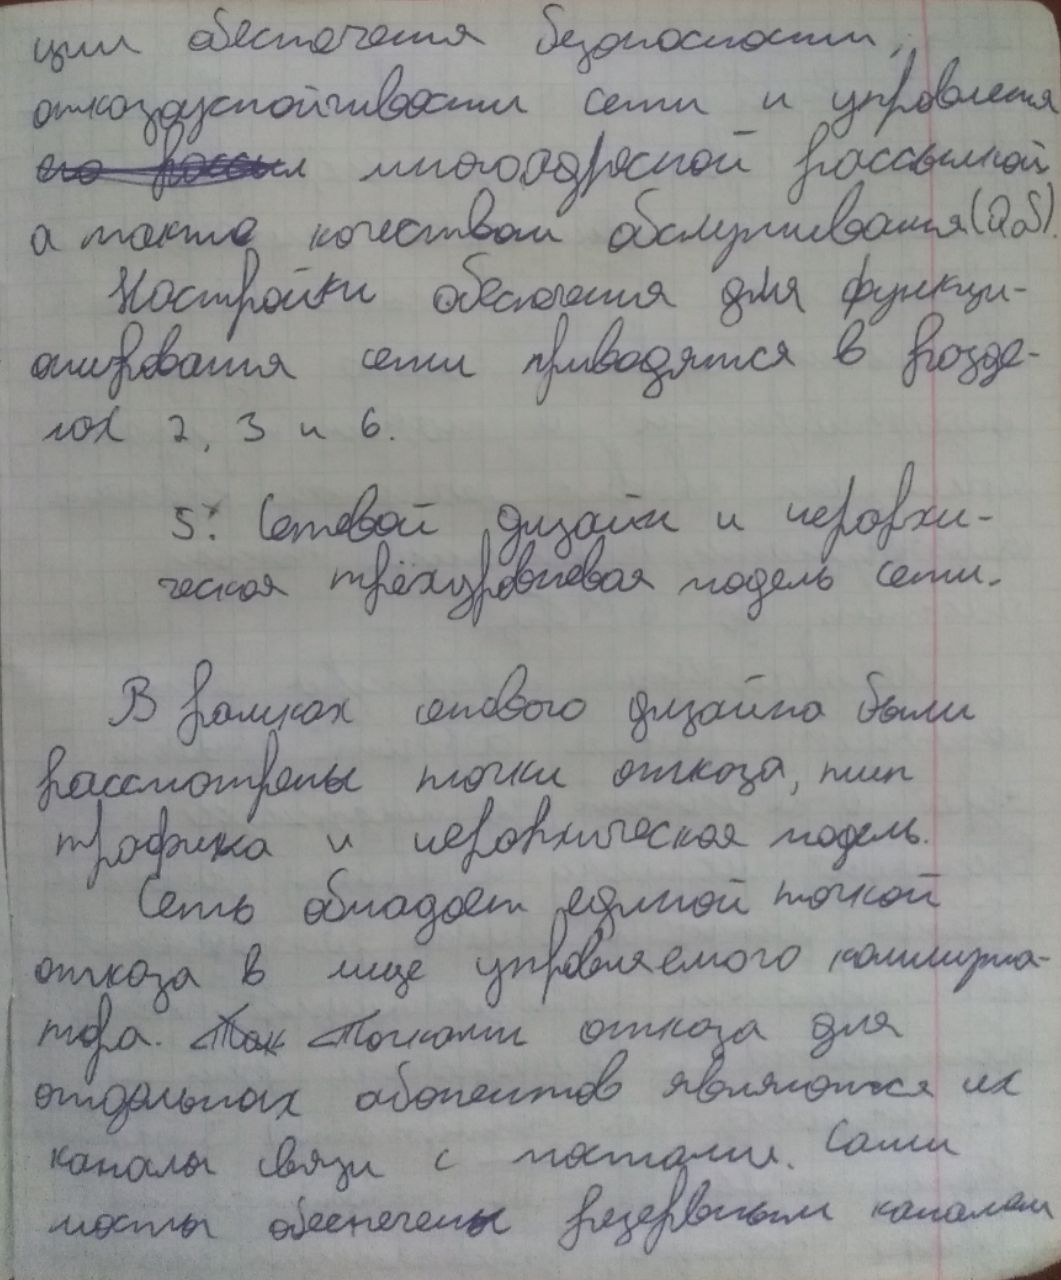 ции обеспечения безопасности,
отказоустойчивости сети и управления
многоадресной рассылкой
а также качеством обслуживания (QoS).
Настройки обеспечения для функци-
онирования сети приводятся в разде-
лах 2, 3 и 6.
5. Сетевой дизайн и иерархи-
ческая трёхуровневая модель сети.
В рамках сетевого дизайна были
рассмотрены точки отказа, тип
трафика и иерархическая модель.
Сеть обладает единой точкой
отказа в лице управляемого коммута-
тора. Точками отказа для
отдельных абонентов являются их
каналы связи с мостами. Сами
мосты обеспечены резервным каналом